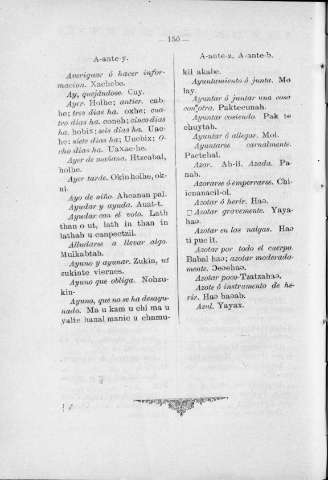 — 150 —
A-ante-y.
Averiguar ó hacer infor-
macion. Xachebe.
Ay, quejándose. Cuy.
Ayer. Holhe; antier. cab
he; tres dias ha. oxhe; cua-
tro dias ha. coneh; cinco dias
ha. hobix; seis dias ha. Uac-
he; siete dias ha; Uucbix; O-
cho dias ha. Uaxac-he.
Ayer de mañana. Htzcabal,
holhe.
Ayer tarde. Okin holhe, ok-
ni.
Ayo de niño. Ahcanan pal.
Ayudar y ayuda. Auat-t.
Ayudar con el voto. Lath
than o ut, lath in than in
lathab u canpectzil.
Alludarse a llevar algo.
Mulkabtah.
Ayuno y ayunar. Zukin, ut
zukiate viernes.
Ayuno que obliga. Nohzu-
kin-
Ayuno, que no se ha desayu-
nado. Ma u kam u chi ma u
yalic hanal manic u chamu-
A-ante-z, A-ante-b.
kil akabe.
Ayuntamiento ó junta. Mo
lay.
Ayuntar ó juntar una cosa
con otra. Paktecunah.
Ayuntar cosiendo. Pak te
chuytah.
Ayuntar ó allegar. Mol.
Ayuntarse carnalmente.
Pactehal.
Azor. Ah-ii. Azada. Pa-
nab.
Azorarse ó emperrarse. Chi-
icnanacil-ol.
Azotar ó herir. Haɔ.
Azotar gravemente. Yaya-
haɔ.
Azotar en las nalgas. Haɔ
ti puc it.
Azotar por todo el cuerpo.
Babal haɔ; azotar moderada-
mente. Ɔeɔehaɔ.
Azotar poco-Tzatzahaɔ.
Azote ó instrumento de he-
rir. Haɔ haɔab.
Azul. Yayax.